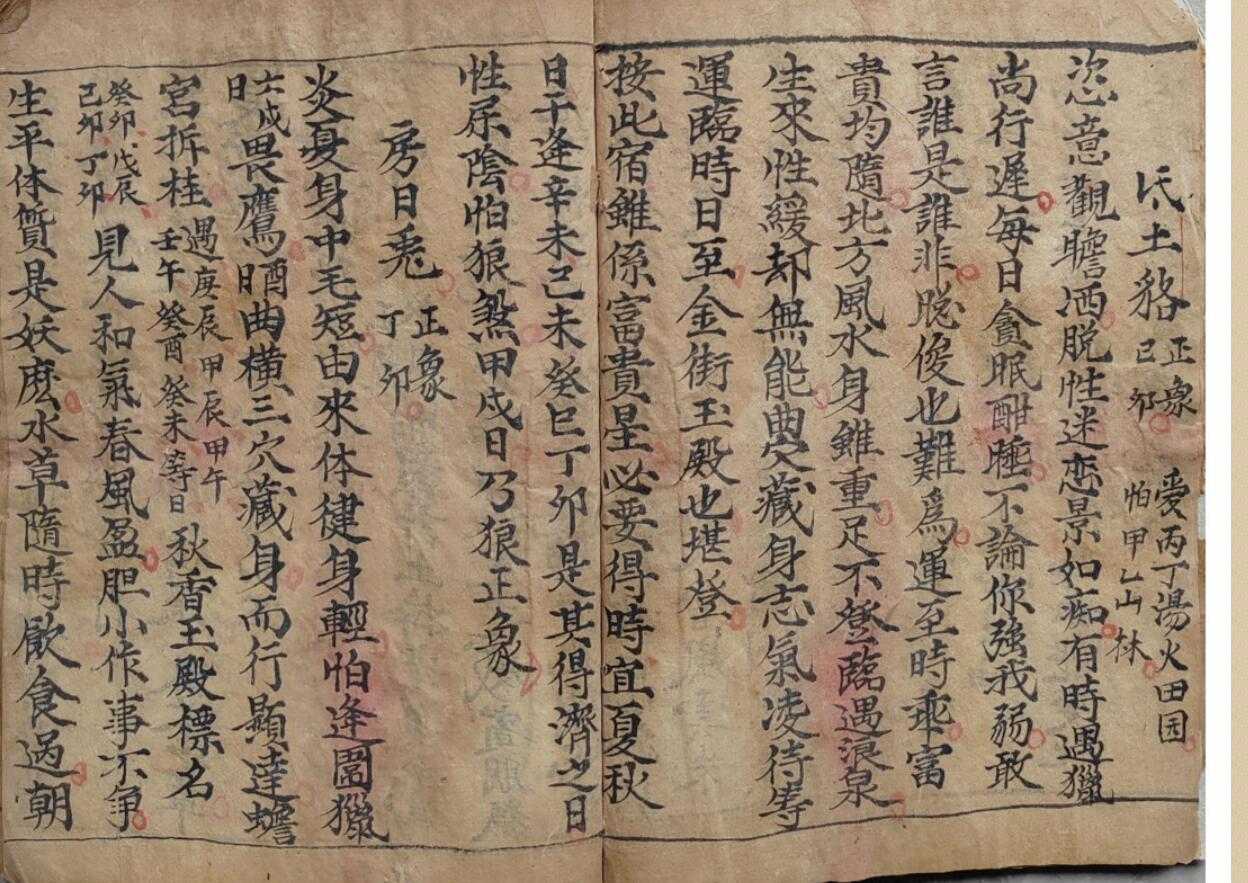 氐土貉 正象己卯 愛丙丁湯火田园 怕甲乙山林
恣意觀瞻洒脱性迷恋景如痴有時遇獵
尚行遲每日貪眠酣睡不論你強我弱敢
言誰是誰非脱俊也難爲運至時乖富
貴均隨北方風水身雖重足不登臨遇浪泉
生來性緩却無能曲穴藏身志氣凌待等
運臨時日至金街玉殿也堪登
按此宿雖係富貴星必要得時宜夏秋
日干逢辛未己未癸巳丁卯是其得濟之日
性尿陰怕狼煞甲戌日乃狼正象
房日兎 正象丁卯
炎夏身中毛短由來体健身輕怕逢圍獵
壬戌日畏鷹酉日曲橫三穴藏身而行顯達蟾
宮折桂 遇庚辰甲辰甲午壬午癸酉癸未等日 秋香玉殿標名
癸卯戊辰己卯丁卯 見人和氣春風盈胆小作事不争
生平体質是妖麽水草隨時飲食過朝